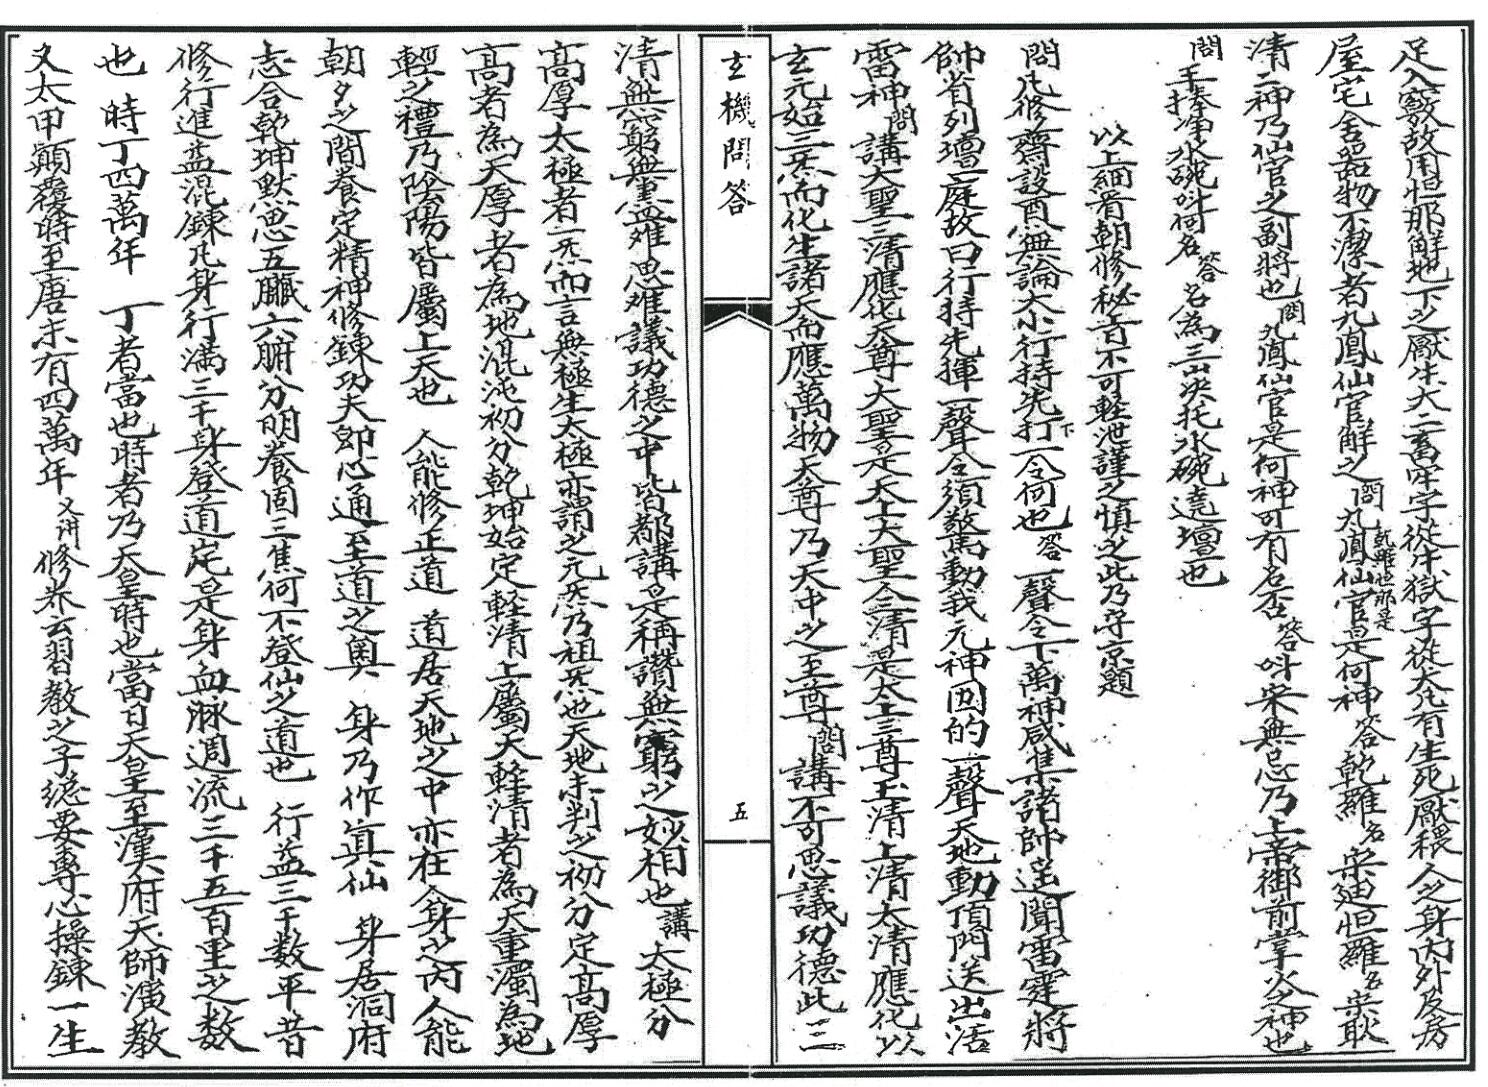 足入竅故用怛那解地下之厭牛犬二畜牢字從牛獄字從犬凡有生死厭穢人之身內外及房
屋宅舍器物不潔者九鳳仙官解之問九鳳仙官是何神答乾羅名宋廸怛羅名宋耿
清二神乃仙官之副將也問九鳳仙官是何神可有名否答叫宋無忌乃上帝御前掌火之神也
問手捧淨水碗叫何名答名為三尖托水碗遶壇也
以上細看朝修秘旨不可軽泄謹之慎之此乃守京題
問凡修齋設醮無論大小行持先打下一令何也答一聲令下萬神咸集諸帥遙聞雷霆將
帥省列壇庭故曰行持先揮一聲令須驚動我元神囙的一聲天地動頂門送出活
雷神問講大聖三清應化天尊大聖是天上大聖人三清是太上三尊玉清上清太清應化以
玄元始三炁而化生諸天而應萬物天尊乃天中之至尊問講不可思議功德此三
玄機問答
五
清無窮無盡难思难議功德之中皆都講是稱讚無窮之妙相也講太極分
高厚太極者一炁而言無極生太極亦謂之元炁乃祖炁也天地未判之初分定高厚
高者為天厚者為地混沌初分乾坤始定軽清上屬天軽清者為天重濁為地
輕之禮乃陰陽皆屬上天也人能修正道道居天地之中亦在人身之丙人能
朝夕之間養定精神修錬功夫郎心通至道之奥身乃作真仙身居洞府
志合乾坤默思五臟六腑分明養固三焦何不登仙之道也行益三千数平昔
修行進益混錬凡身行满三千身登道定是身血脉週流三千五百里之数
也時丁四萬年丁者當也時者乃天皇時也當日天皇至漢府天師演教
又太甲顛覆時至唐未有四萬年又讲修养云習教之子總要專心操錬一生